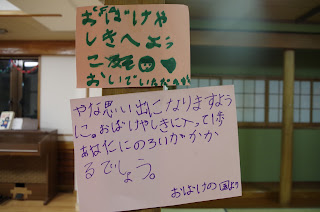 おばけや
しきへよう
こそ
おいでいんだのか
やな思い出になりますよう
に。おばけやしきに入って1歩
あなたにのろいがかか
るでしょう。
おばけの国より